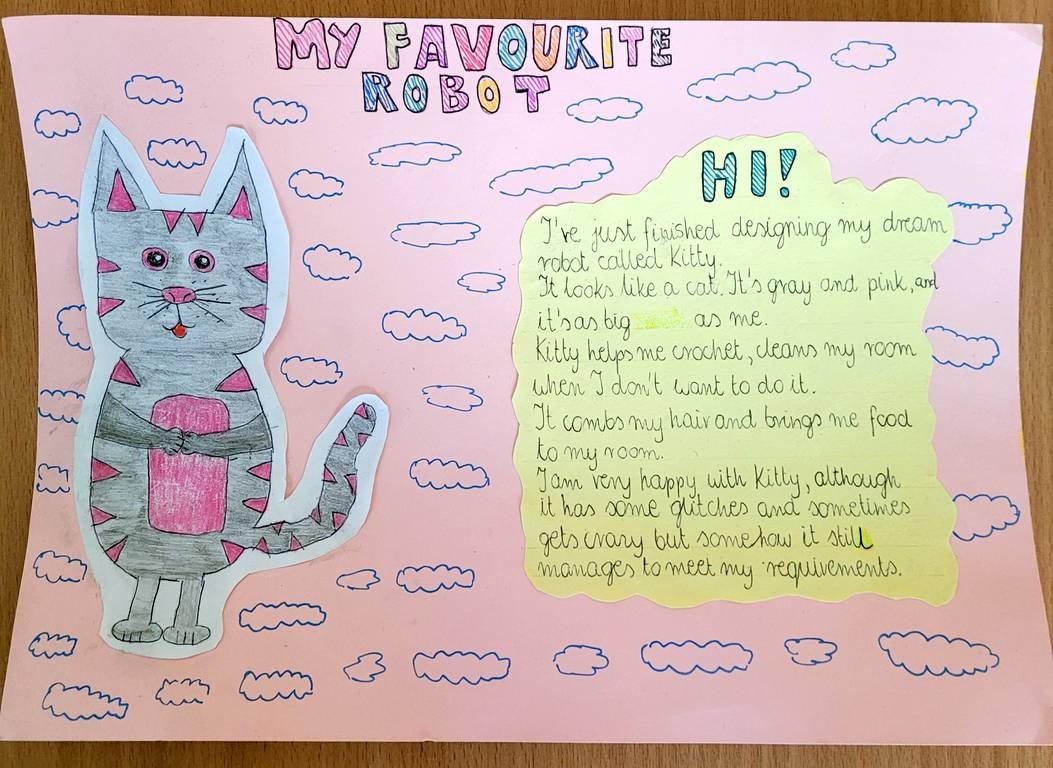 MY FAVOURITE
ROBOT
HI!
I've just finished designing my dream
robot called Kitty.
It looks like a cat. It's gray and pink, and
it's as big as me.
Kitty helps me crochet, cleans my room
when I don't want to do it.
It combs my hair and brings me food
to my room.
I am very happy with Kitty, although
it has some glitches and sometimes
gets crazy but somehow it still
manages to meet my requirements.